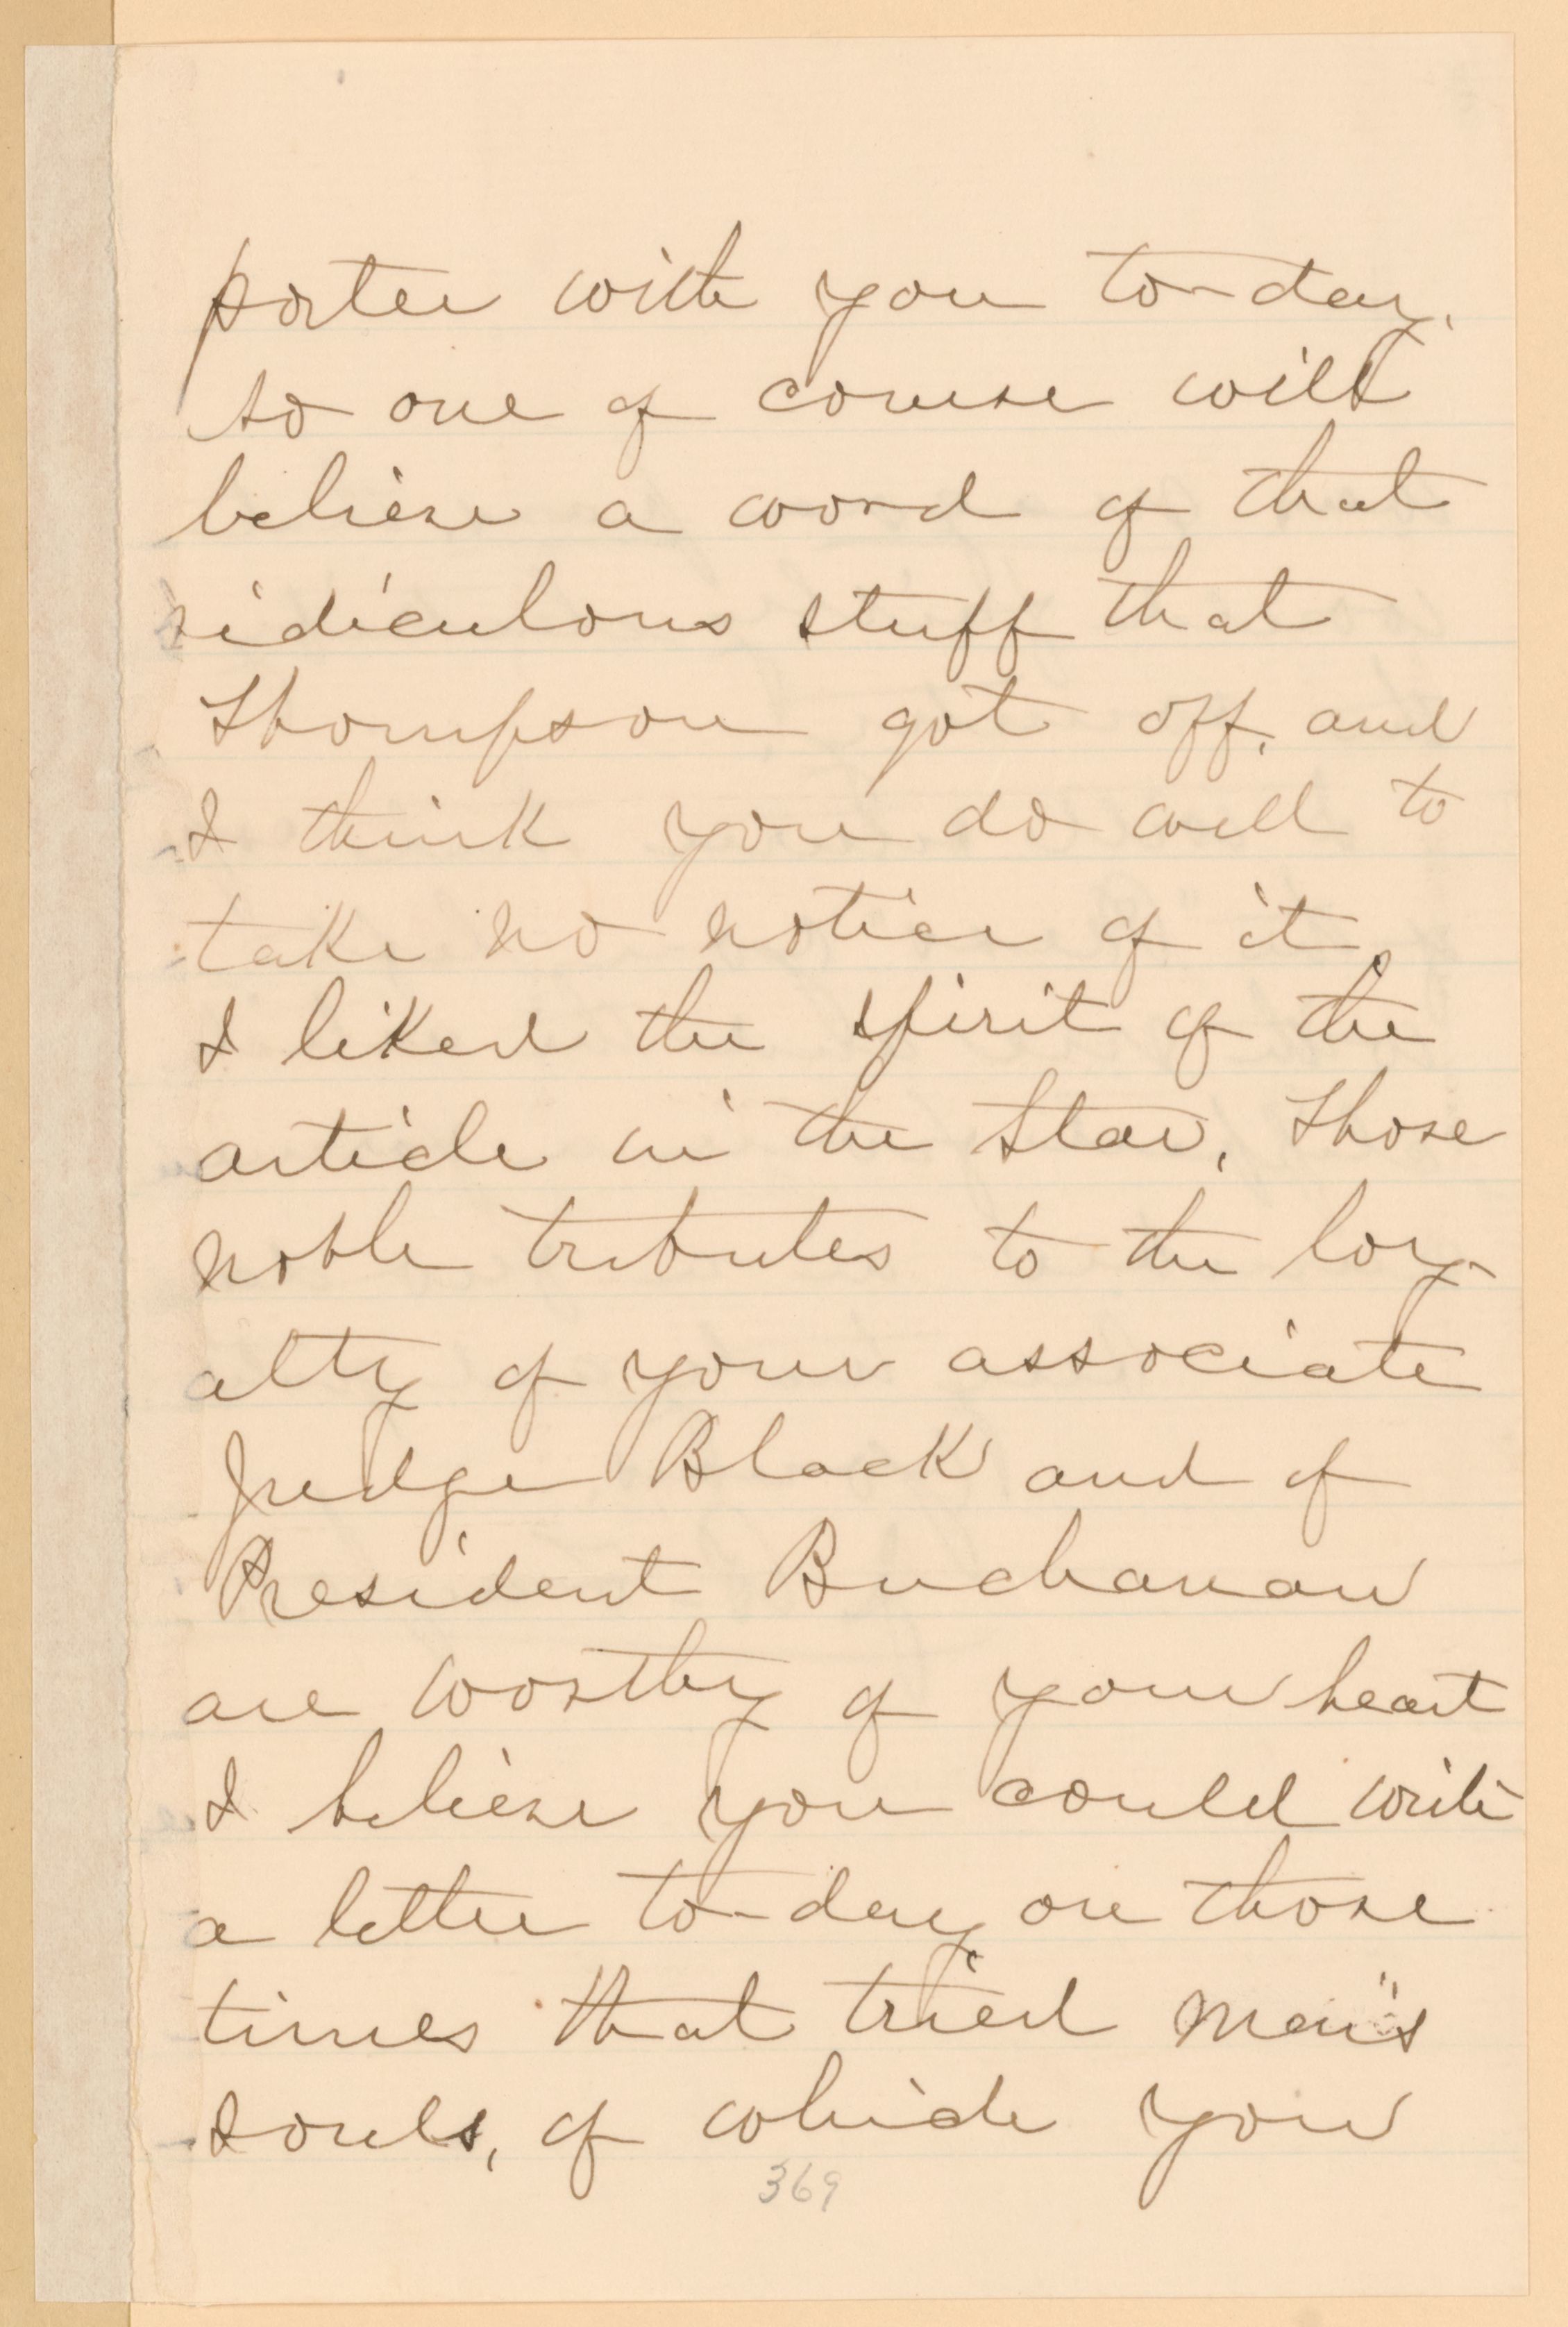 porter with you to-day.
No one of course will
believe a word of that
ridiculous stuff that
Thompson got off, and
I think you do well to
take no notice of it.
I liked the spirit of the
article in the Star, Those
noble tributes to the loy-
alty of your associate
Judge Black and of
President Buchanan
are worthy of your heart
I believe you could write
a letter to-day on those
times that tried men's
souls, of which you
369